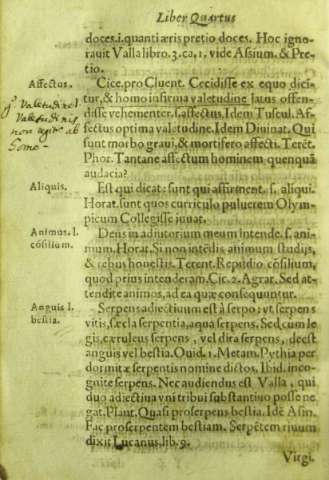 Liber Quartus
doces.i.quanti æris pretio doces. Hoc igno-
rauit Valla libro.3.ca.1. vide Assium. & Pre-
tio.
Affectus.
Cice.pro Cluent. Cecidisse ex equo dici-
tur, & homo infirma valetudine latus offen-
disse vehementer.s.affectus. Idem Tuscul. Af-
fectus optima valetudine. Idem Diuinat. Qui
sunt morbo graui, & mortifero affecti. Teret.
Phor. Tantane affectum hominem quenquā
audacia?
Valetudine
Valetudinis
non
homo
Aliquis.
Est qui dicat: sunt qui affirment. s. aliqui.
Horat. sunt quos curriculo puluerem Olym-
picum Collegisse iuuat.
Animus. l.
cōsilium.
Deus in adiutorium meum intende. s. ani-
mum. Horat. Si non intēdis animum studijs,
& rebus honestis. Terent. Repudio cōsilium,
quod prius intenderam. Cic. 2. Agrar. Sed at-
tendite animos, ad ea quæ consequuntur.
Anguis l.
bestia.
Serpens adiectiuum est à serpo: vt serpens
vitis, sæcla serpentia, aqua serpens. Sed cum le-
gis, cæruleus serpens, vel dira serpens, deest
anguis vel bestia. Ouid. 1. Metam. Pythia per
domitæ serpentis nomine dictos. Ibid. inco-
gnite serpens. Nec audiendus est Valla, qui
duo adiectiua vni tribui substantiuo posse ne
gat. Plant. Quasi proserpens bestia. Idē Asin.
Fac proserpentem bestiam. Serpētem riuum
dixit Lucanus.lib.9.
Virgi.